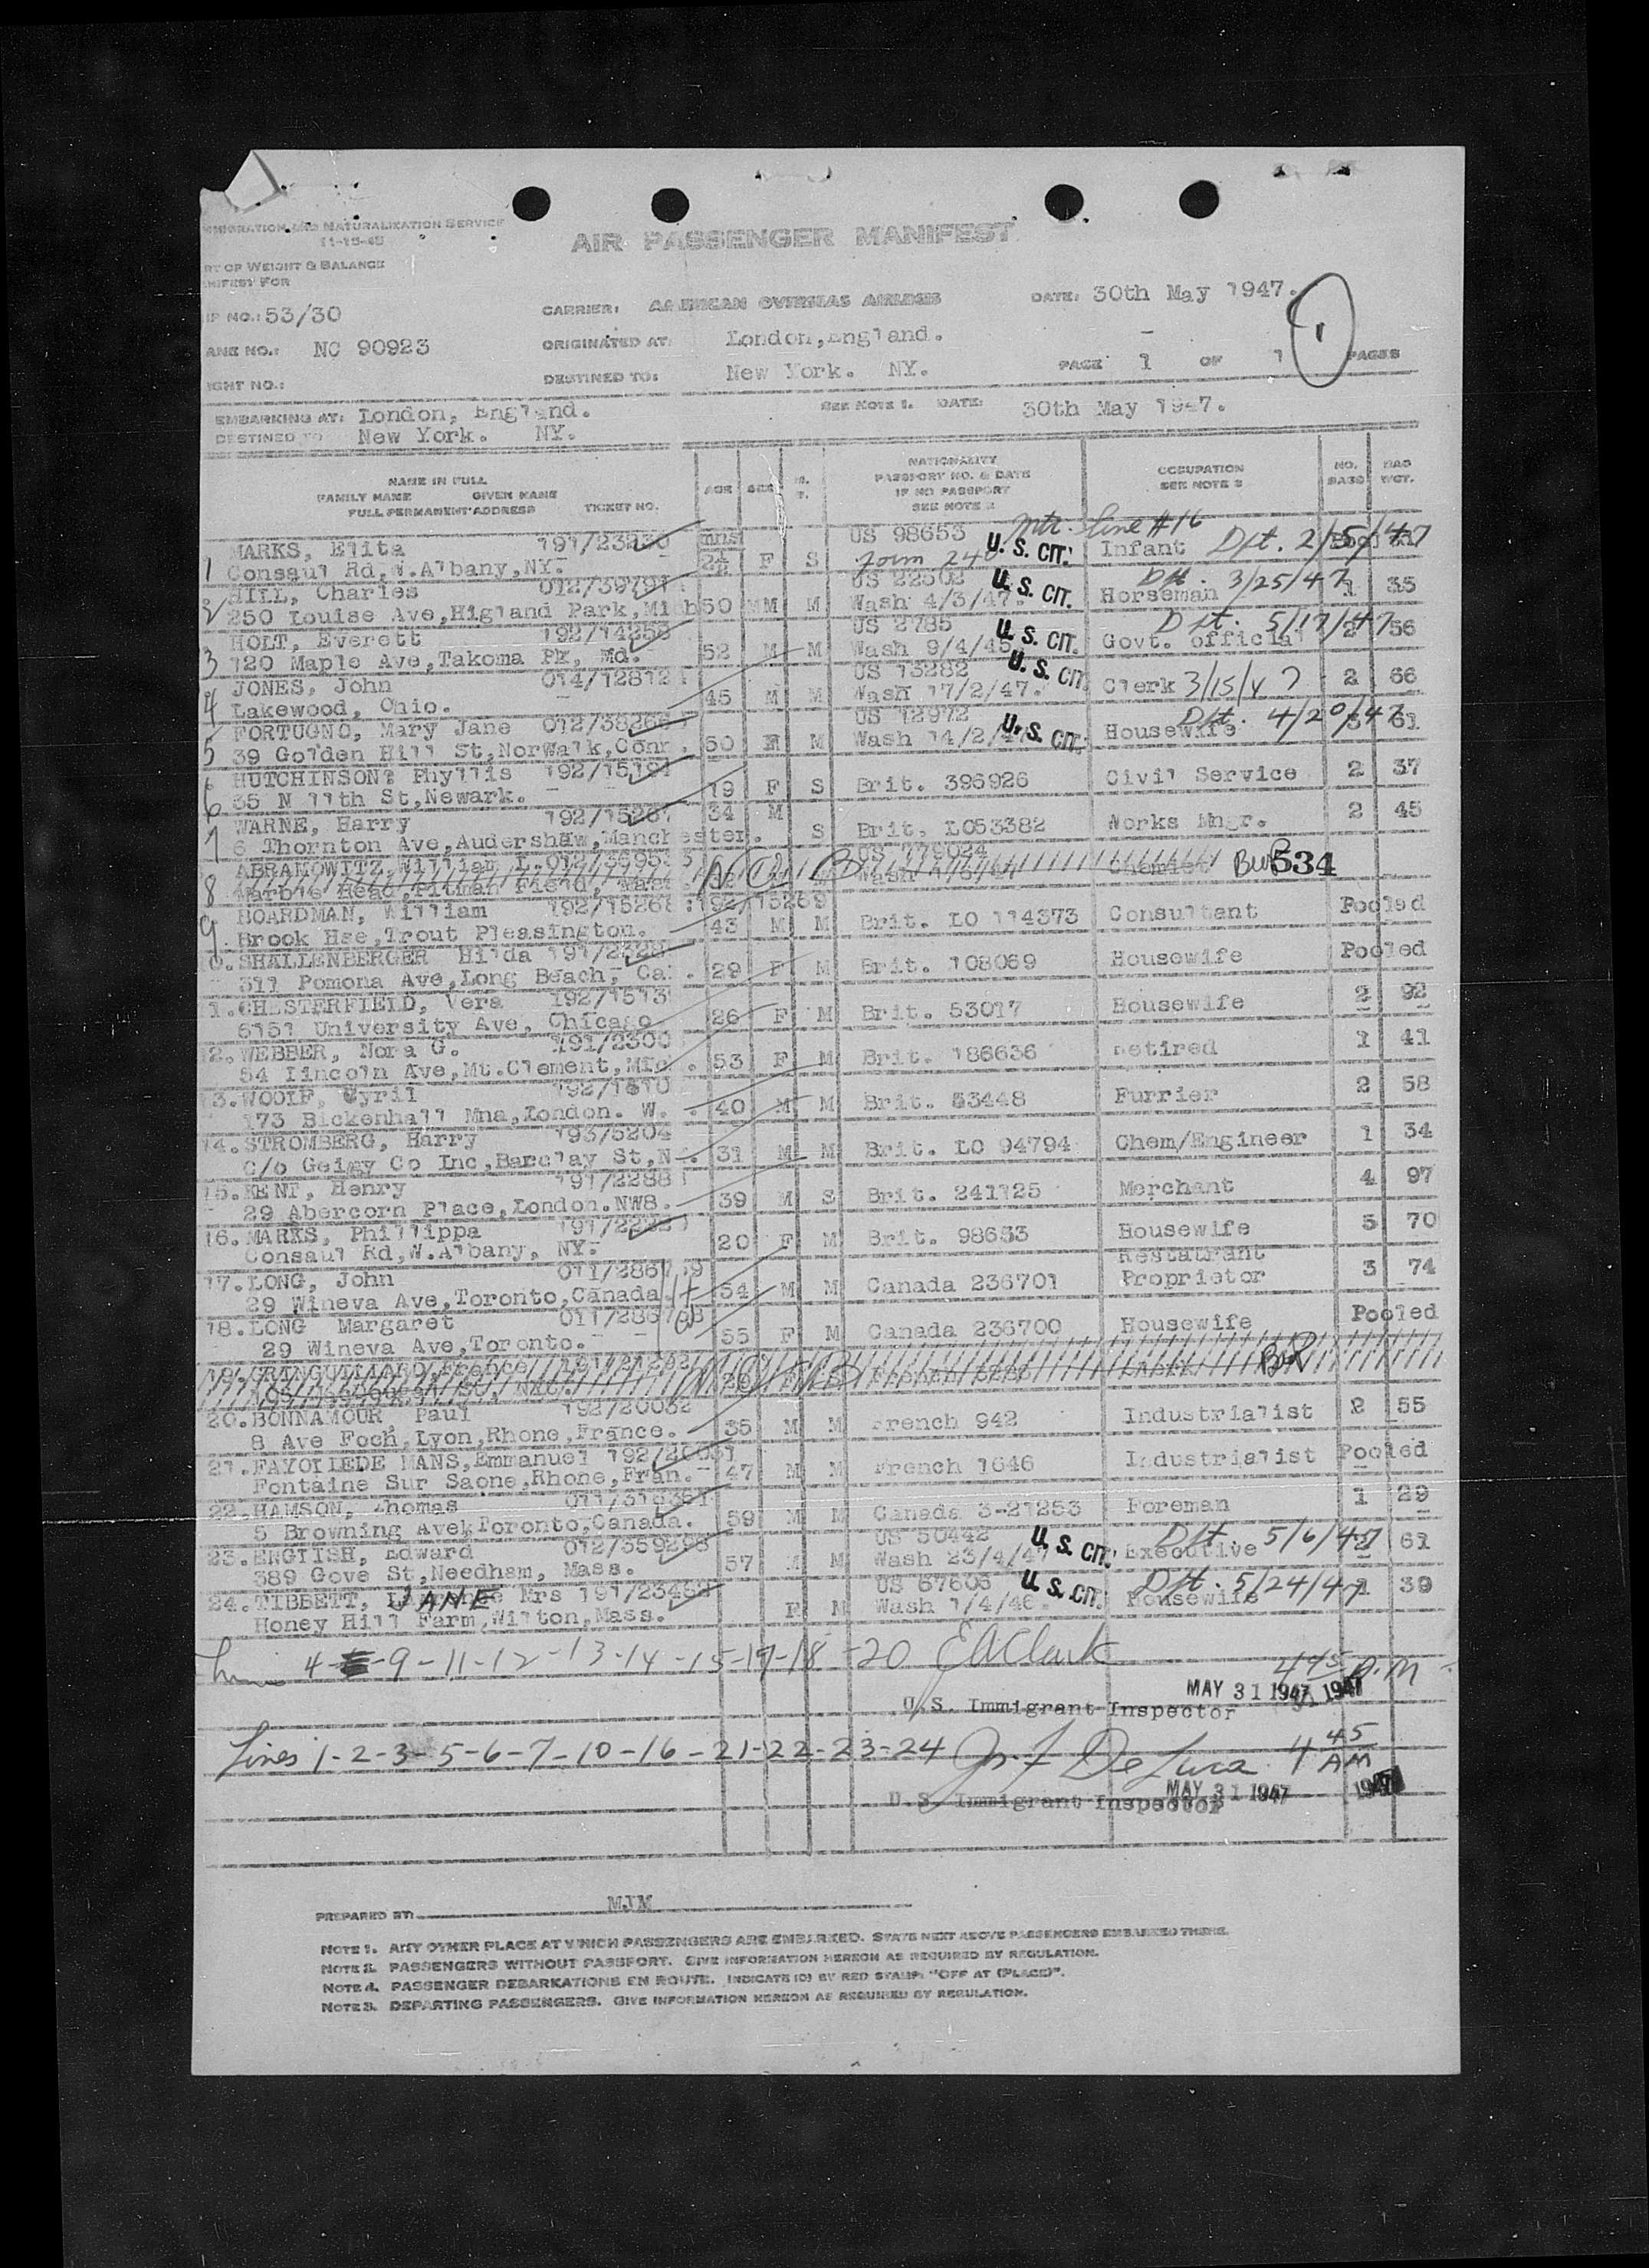 IMMIGRATION AND NATURALIZATION SERVICE
11-15-45
AIR PASSENGER MANIFEST
RT OF WEIGHT & BALANCE
NIFEST FOR
IP NO.: 53/30
CARRIER: AMERICAN OVERSEAS AIRLINES
DATE: 30th May 1947.
1
ANE NO.: NC 90923
ORIGINATED AT: London, England.
IGHT NO.:
DESTINED TO: New York. NY.
PAGE 1 OF 1 PAGES
EMBARKING AT: London, England.
SEE NOTE 1. DATE: 30th May 1947.
DESTINED TO New York. NY.
NAME IN FULL
FAMILY NAME GIVEN NAME
FULL PERMANENT ADDRESS TICKET NO.
AGE SEX M. S.
NATIONALITY
PASSPORT NO. & DATE
IF NO PASSPORT
SEE NOTE 2
OCCUPATION
SEE NOTE 3
NO. BAGS
BAG WGT.
mtr. line #16
1 MARKS, Elita 191/23230 mns US 98653 U.S. CIT. Infant Dft. 2/5/47
Consaul Rd,W.Albany,NY. F S Form 240
2 HILL, Charles 012/39791 US 22502 U.S. CIT. Dft. 3/25/47
250 Louise Ave,Higland Park,Mich 50 MM M Wash 4/3/47. Horseman 1 35
3 HOLT, Everett 192/14256 US 2785 U.S. CIT. Dft. 5/17/47
720 Maple Ave,Takoma Pk, Md. 52 M M Wash 9/4/45 Govt. official 2 56
4 JONES, John 014/12812 US 13282 U.S. CIT.
Lakewood, Ohio. 45 M M Wash 17/2/47. Clerk 3/15/47 2 66
5 FORTUGNO, Mary Jane 012/38266 US 12972 U.S. CIT. Dft. 4/20/47
39 Golden Hill St,NorWalk,Conn. 50 M Wash 14/2/ Housewife 61
6 HUTCHINSON, Phyllis 192/15191
35 N 11th St,Newark. 19 F S Brit. 396926 Civil Service 2 37
7 WARNE, Harry 192/15267 34 M
6 Thornton Ave,Audershaw,Manchester. S Brit. LO53382 Works Mngr. 2 45
8 ABRAMOWITZ, William L. 012/36953 Chemist 534
Marble Head,Pitman Fiend, Mass.
9. BOARDMAN, William 192/15268:192/15269
Brook Hse,Trout Pleasington. 43 M M Brit. LO 114373 Consultant Pooled
10. SHALLENBERGER Hilda 191/2328
311 Pomona Ave,Long Beach, Cal. 29 F M Brit. 108069 Housewife Pooled
11. CHESTERFIELD, Vera 192/1513
6151 University Ave, Chicago 26 F M Brit. 53017 Housewife 2 92
12. WEBBER, Nora G. 191/2300
54 Lincoln Ave,Mt.Clement,Mic. 53 F M Brit. 186636 Retired 1 41
13. WOOLF, Cyril 192/1510
173 Bickenhall Mns,London. W. 40 M M Brit. 53448 Furrier 2 58
14. STROMBERG, Harry 193/5204
C/o Geigy Co Inc,Barclay St,N. 31 M M Brit. LO 94794 Chem/Engineer 1 34
15. KENT, Henry 191/2288
29 Abercorn Place,London.NW8. 39 M S Brit. 241125 Merchant 4 97
16. MARKS, Phillippa 191/2323
Consaul Rd,W.Albany, NY. 20 F M Brit. 98653 Housewife 5 70
17. LONG, John 011/286799 Restaurant
29 Wineva Ave,Toronto,Canada. 54 M M Canada 236701 Proprietor 3 74
18. LONG Margaret 011/286798
29 Wineva Ave,Toronto. 55 F M Canada 236700 Housewife Pooled
19.
20. BONNAMOUR Paul 192/20032
8 Ave Foch,Lyon,Rhone,France. 35 M M French 942 Industrialist 2 55
21. FAYOLLEDE MANS,Emmanuel 192/20031
Fontaine Sur Saone,Rhone,Fran. 47 M M French 1646 Industrialist Pooled
22. HAMSON, Thomas 011/316351
5 Browning Ave,Toronto,Canada. 59 M M Canada 3-21253 Foreman 1 29
23. ENGLISH, Edward 012/359296 US 50442 U.S. CIT. Dft. 5/6/47
389 Gove St,Needham, Mass. 57 M M Wash 23/4/47 Executive 2 61
24. TIBBETT, JANE Mrs 191/23469 US 67605 U.S. CIT. Dft. 5/24/47
Honey Hill Farm,Wilton,Mass. F M Wash 1/4/46. Housewife 1 39
4-9-11-12-13-14-15-17-18-20 EA Clark 4 45 A.M.
U.S. Immigrant Inspector MAY 31 1947
Lines 1-2-3-5-6-7-10-16-21-22-23-24 De Luca 4 45 AM
U.S. Immigrant Inspector MAY 31 1947
PREPARED BY: MJM
NOTE 1. ANY OTHER PLACE AT WHICH PASSENGERS ARE EMBARKED. STATE NEXT ABOVE PASSENGERS EMBARKED THERE.
NOTE 2. PASSENGERS WITHOUT PASSPORT. GIVE INFORMATION HEREON AS REQUIRED BY REGULATION.
NOTE 4. PASSENGER DEBARKATIONS EN ROUTE. INDICATE (D) BY RED STAMP: "OFF AT (PLACE)".
NOTE 3. DEPARTING PASSENGERS. GIVE INFORMATION HEREON AS REQUIRED BY REGULATION.